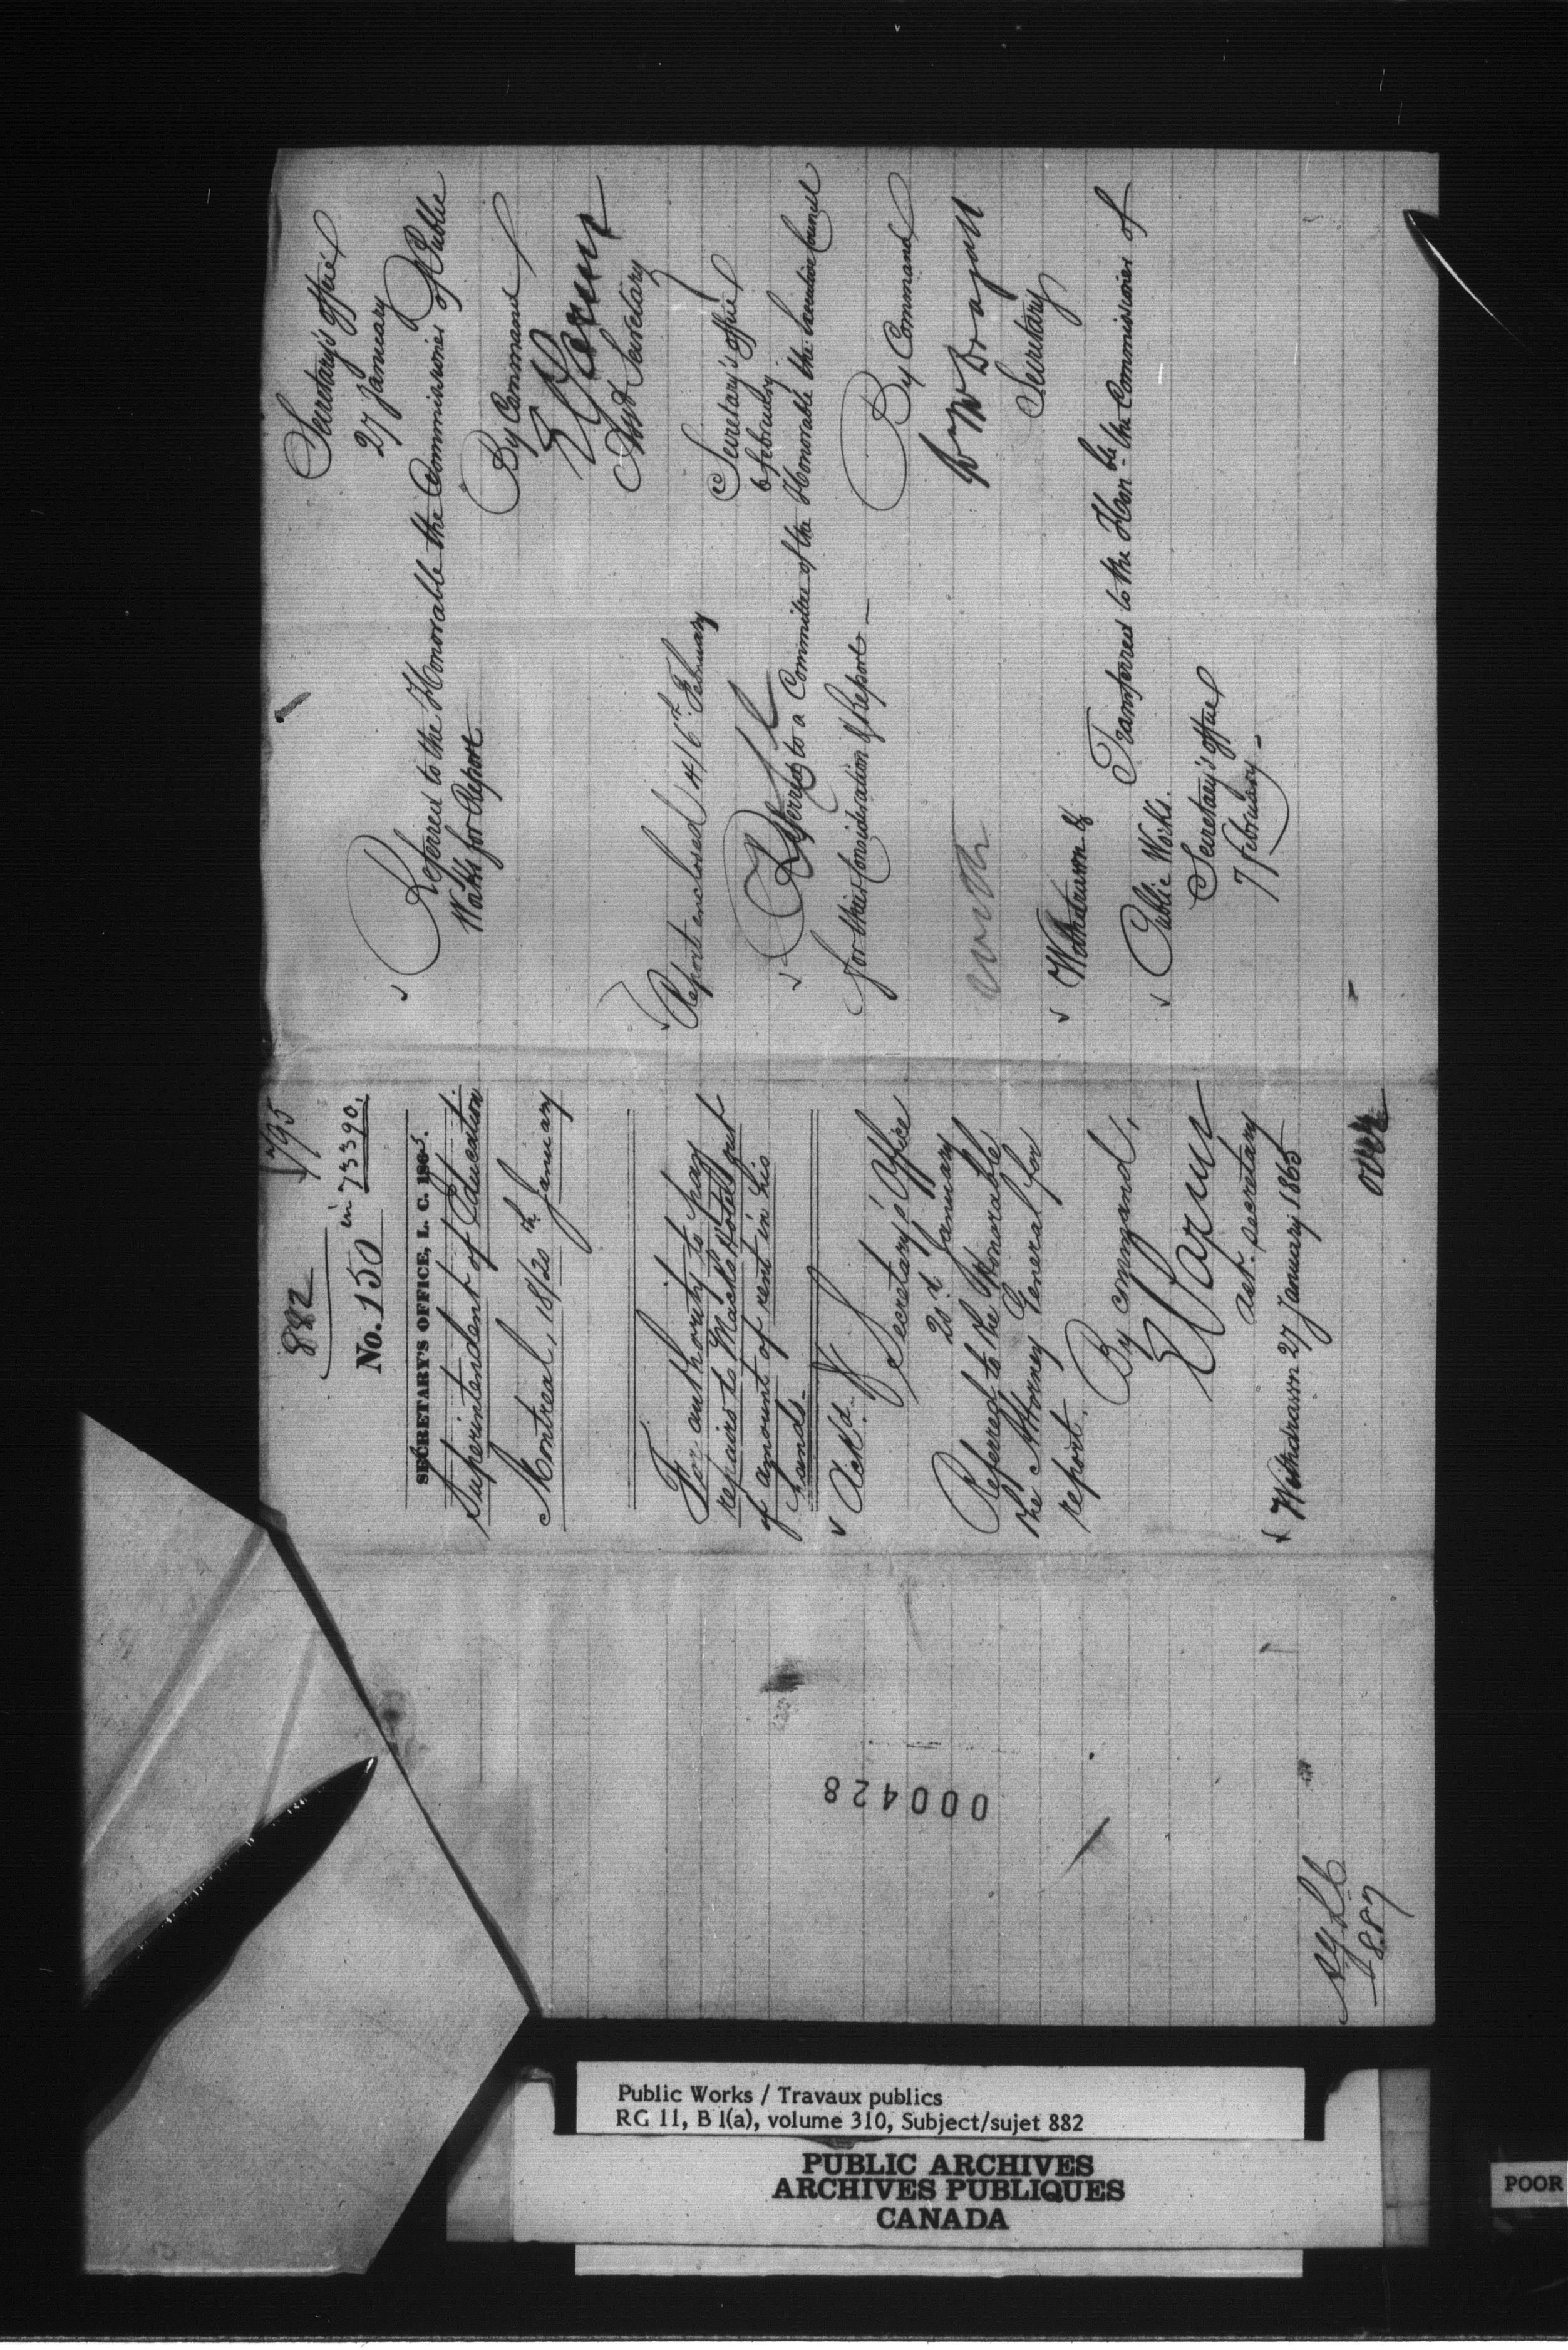 882
795
No. 150 in 73390.
SECRETARY'S OFFICE, L. C. 1865.
Superintendent of Education
Montreal, 18/20th January
For authority to pay
repairs to Mack's Hotel out
of amount of rent in his
hands.
Ackd.
Secretary's Office
20th January
Referred to the Honorable
the Attorney General for
report.
By command,
E Parent
Ast. Secretary
Withdrawn 27 January 1865
over
Secretary's office
27 January
Referred to the Honorable the Commissioner of Public
Works for Report
By Command
E Parent
Asst Secretary
Report enclosed 4/6th February
Secretary's office
6 february
Referred to a Committee of the Honorable the Executive Council
for their Consideration & Report —
By Command
Secretary
Withdrawn &
Transferred to the Hon-ble the Commissioner of
Public Works.
Secretary's office
7 february -
000428
887
Public Works / Travaux publics
RG 11, B 1(a), volume 310, Subject/sujet 882
PUBLIC ARCHIVES
ARCHIVES PUBLIQUES
CANADA
POOR